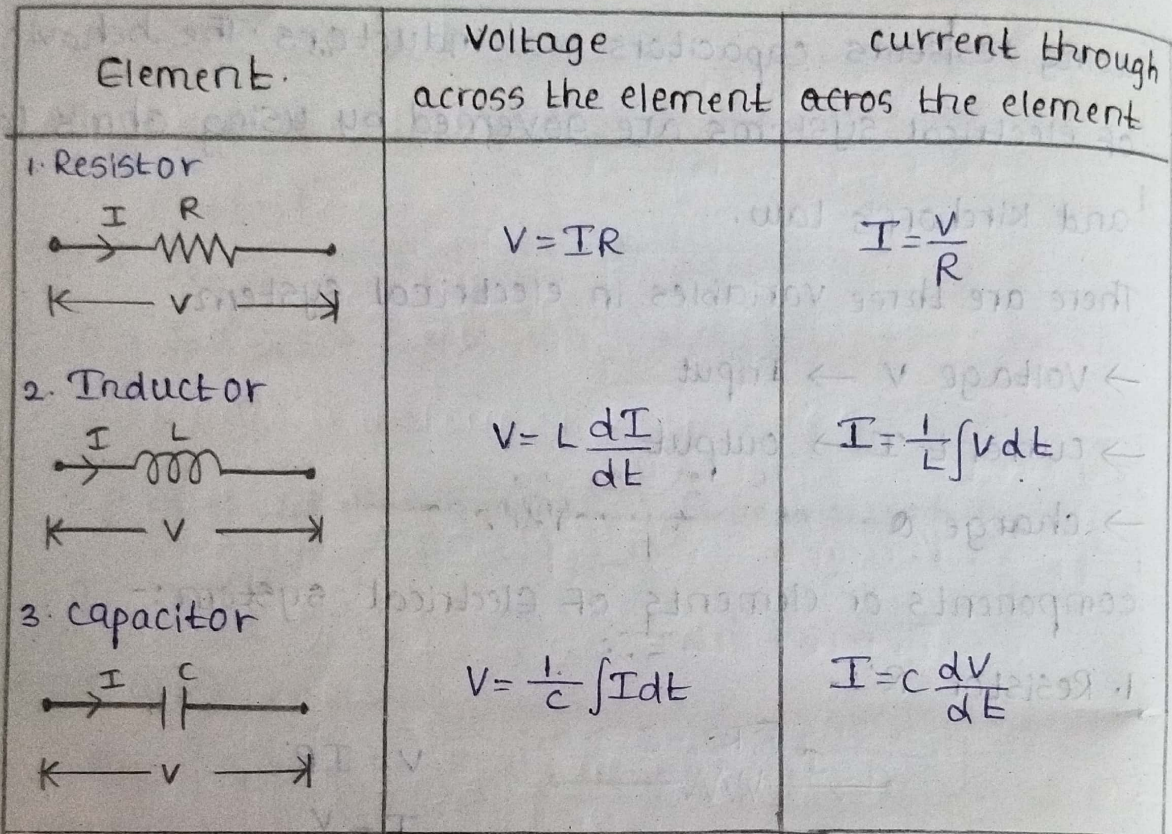 Element.
Voltage
across the element
current through
acros the element
1. Resistor
I R
V
V = IR
I = V/R
2. Inductor
I L
V
V = L dI/dt
I = 1/L ∫v dt
3. capacitor
I C
V
V = 1/C ∫Idt
I = C dV/dt